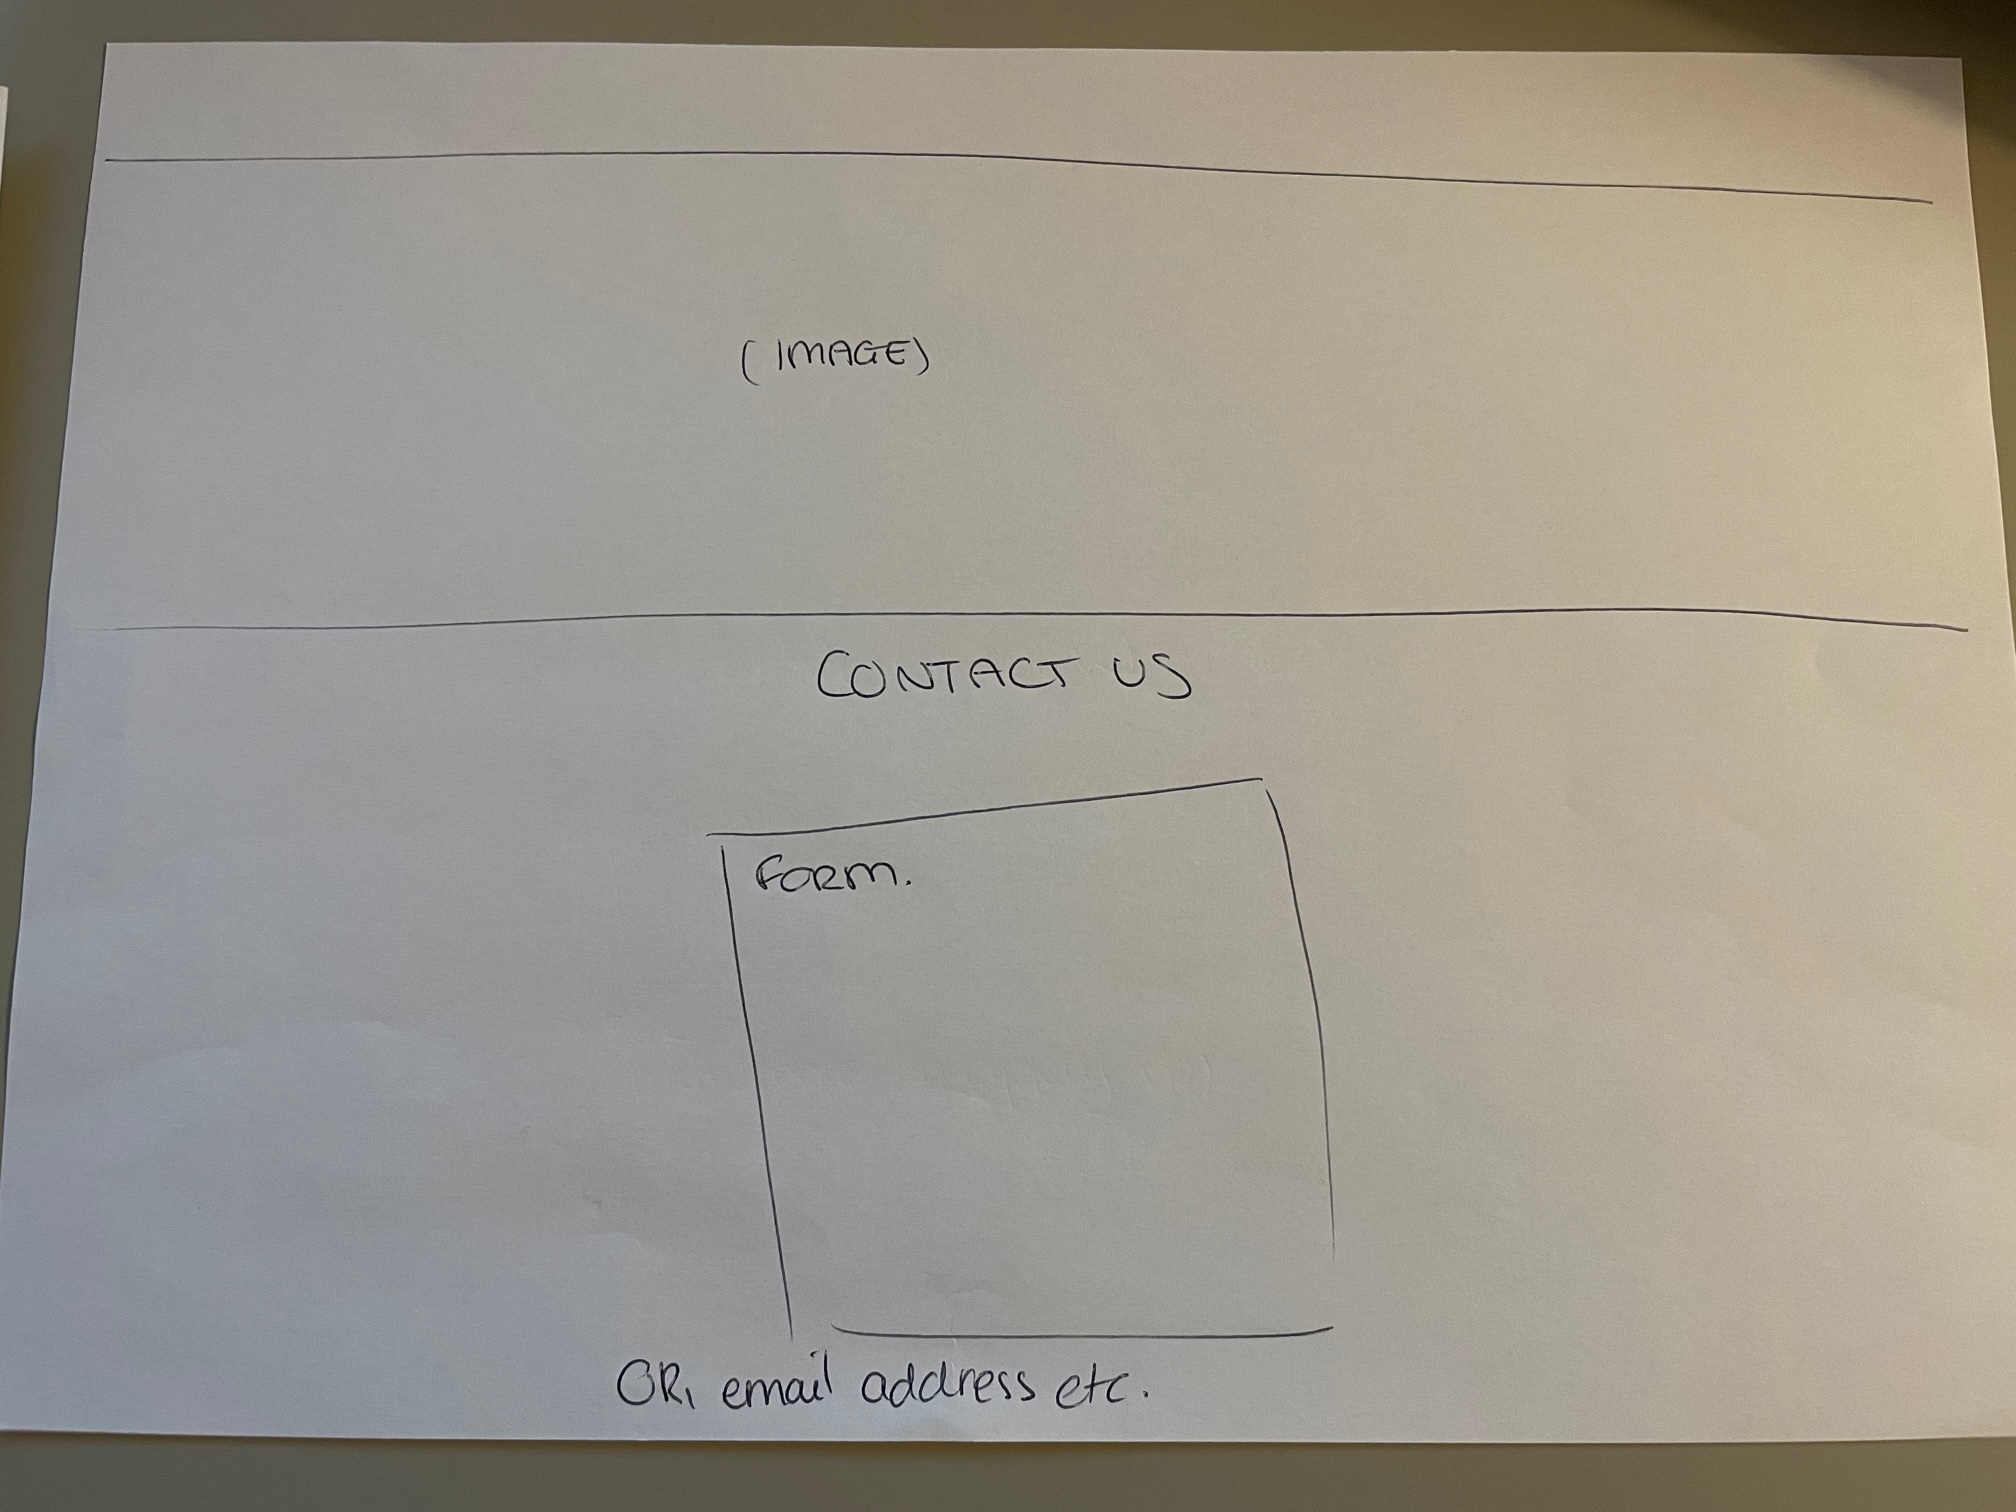 (IMAGE)
CONTACT US
FORM.
OR, email address etc.